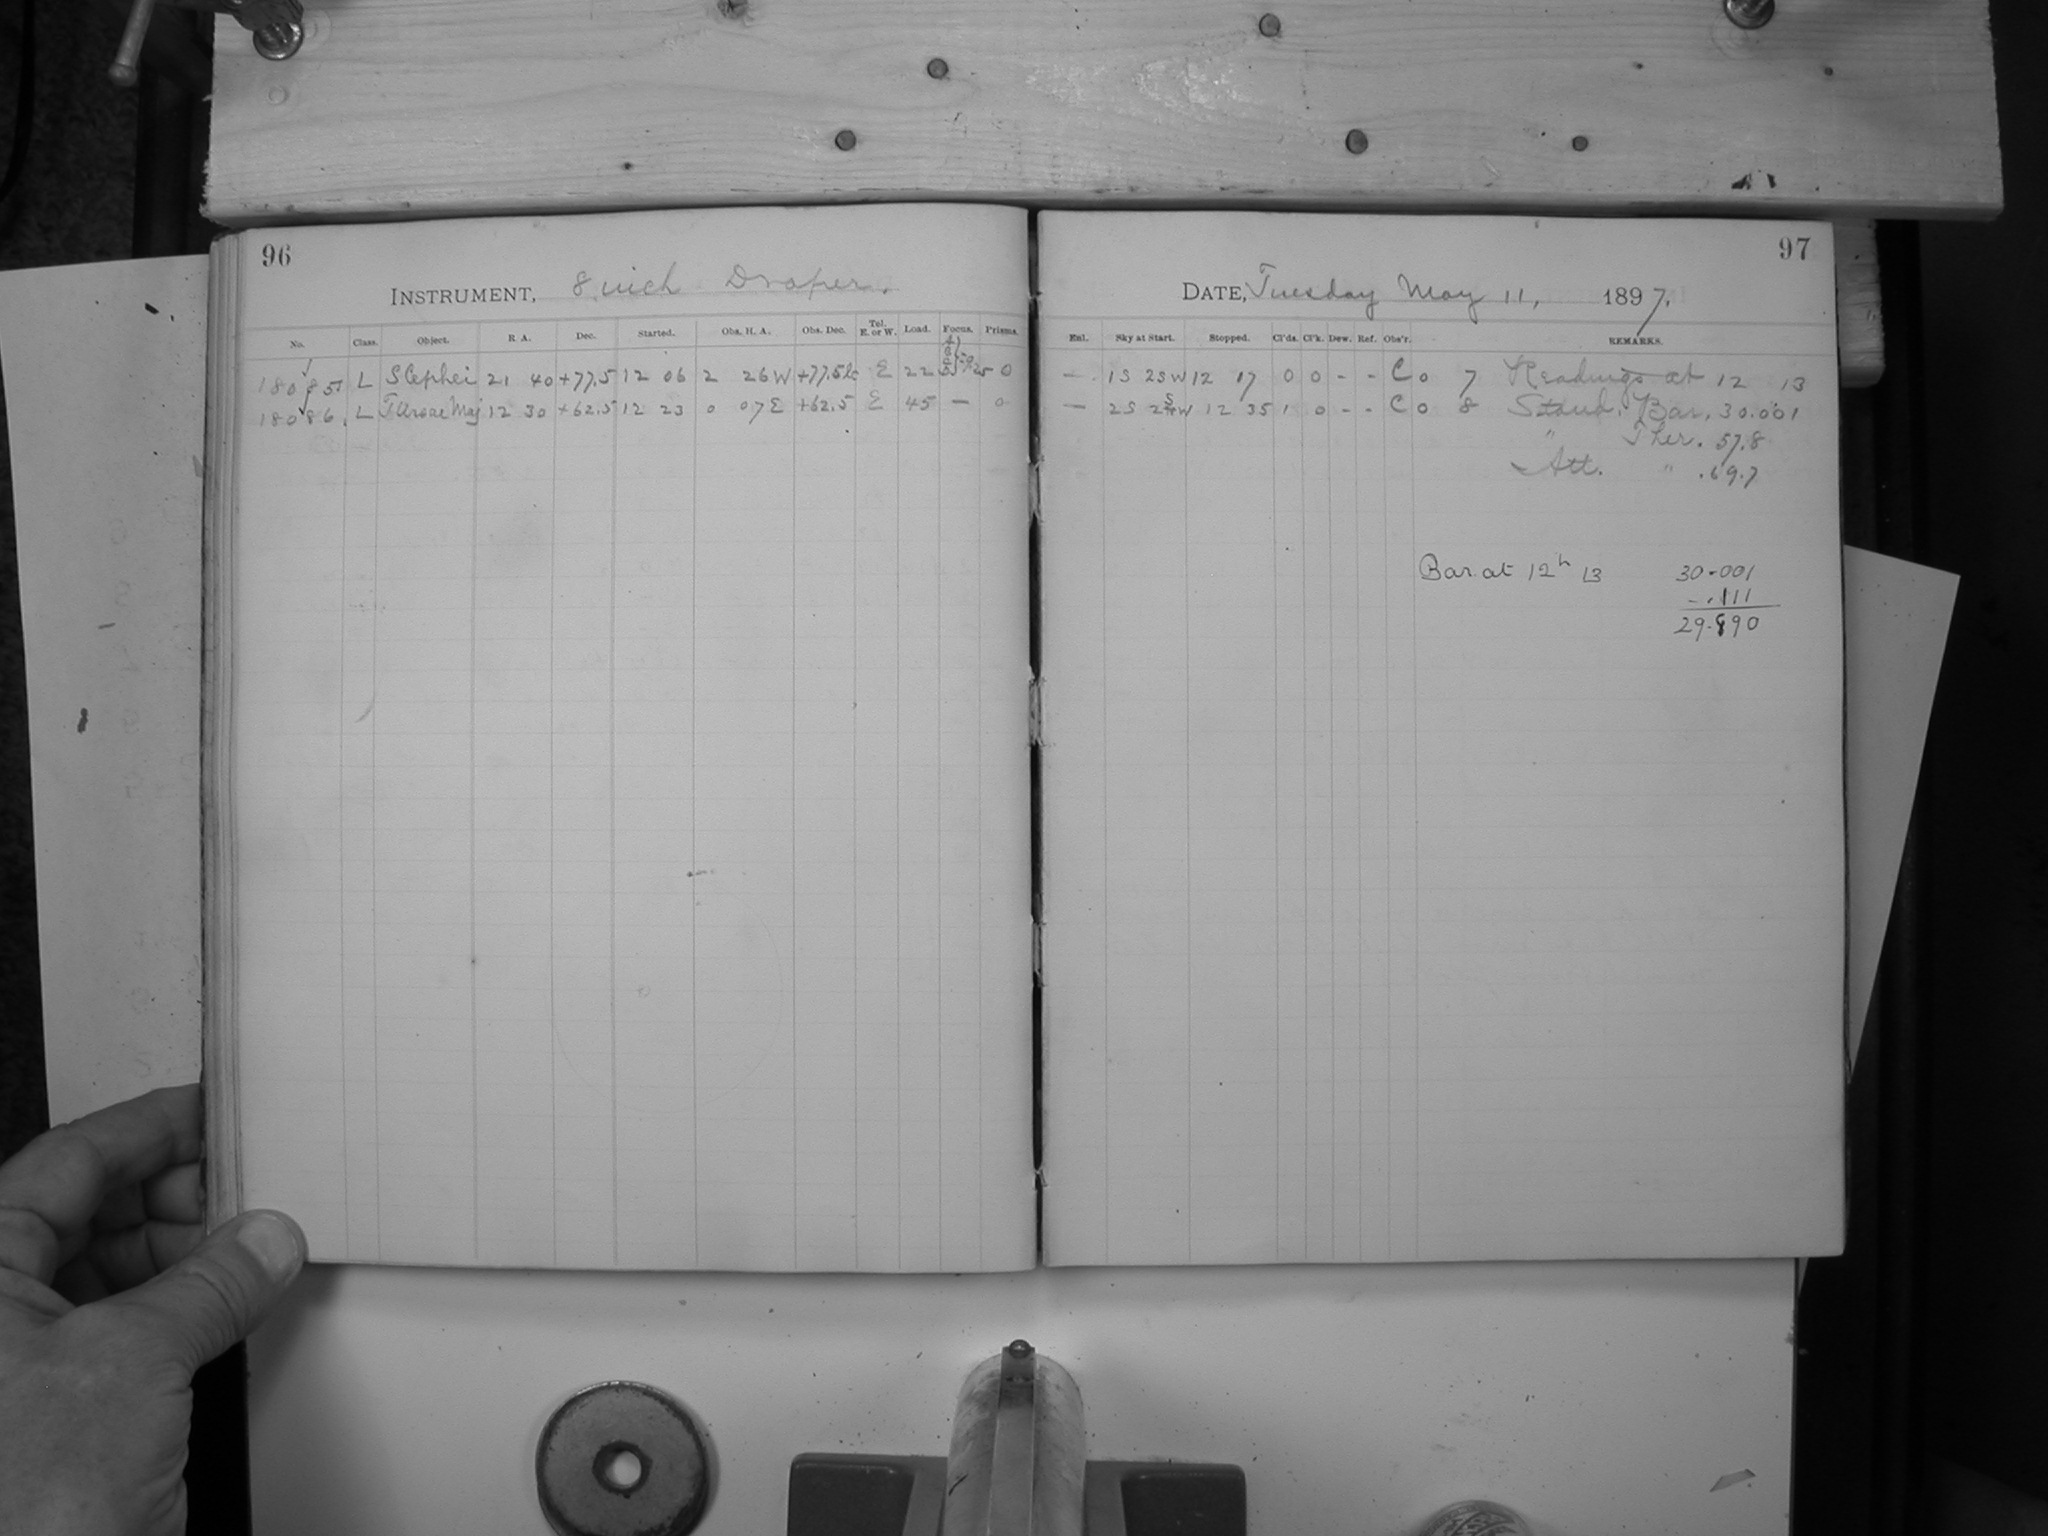 96
INSTRUMENT, 8 inch Draper.
No. Class. Object. R. A. Dec. Started. Obs. H. A. Obs. Dec. Tel. E. or W. Load. Focus. Prisms.
18085 L S Cephei 21 40 +77.5 12 06 2 26 W +77.5 E 22 0
18086. L T Ursae Maj 12 30 +62.5 12 23 0 07 E +62.5 E 45 — 0
97
DATE, Tuesday May 11, 1897.
Enl. Sky at Start. Stopped. Cl'ds. Cl'k. Dew. Ref. Obs'r. REMARKS.
— 1S 2S W 12 17 0 0 - - C 0 7 Readings at 12 13
— 2S 2 W 12 35 1 0 - - C 0 8 Stand. Bar. 30.001
" Ther. 57.8
Att. " 69.7
Bar. at 12h 13 30.001
-.111
29.890